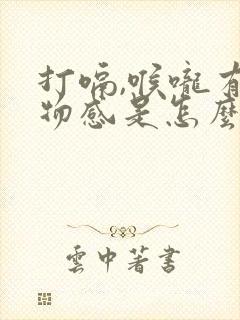 打嗝,喉嚨有
物感是怎麼
雲中著書